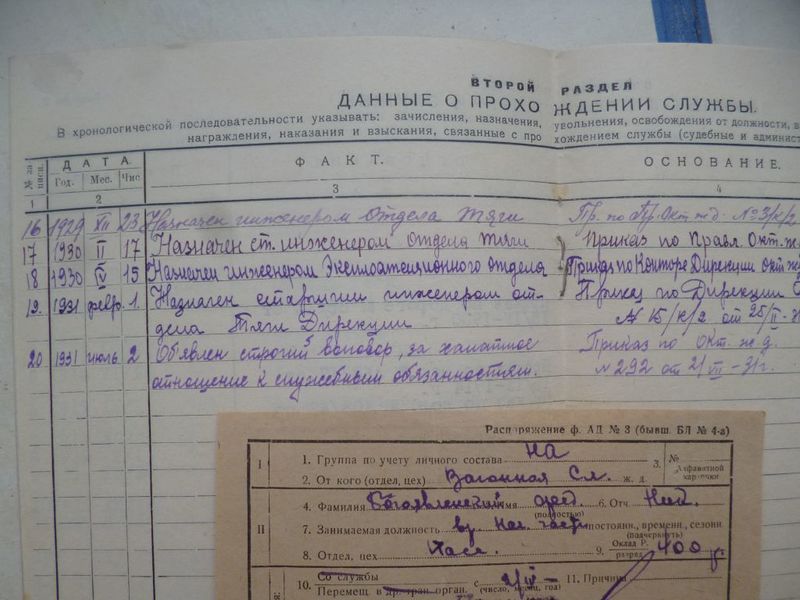 ВТОРОЙ РАЗДЕЛ
ДАННЫЕ О ПРОХО ЖДЕНИИ СЛУЖБЫ.
В хронологической последовательности указывать: зачисления, назначения, увольнения, освобождения от должности, в
награждения, наказания и взыскания, связанные с про хождением службы (судебные и админист
№ за писи. ДАТА. ФАКТ. ОСНОВАНИЕ.
Год. Мес. Чис
1 2 3 4
16 1929 XII 23 Назначен инженером отдела тяги Пр. по Пр. Окт. ж.д. № 3/к/2
17 1930 II 17 Назначен ст. инженером отдела тяги Приказ по Правл. Окт. ж.
18 1930 IV 15 Назначен инженером Эксплоатационного отдела Приказ по Конторе Дирекции Окт. ж
19. 1931 февр. 1. Назначен старшим инженером от- Приказ по Дирекции
дела Тяги Дирекции № 15/к/2 от 25/II-31
20 1931 июль 2 Объявлен строгий выговор, за халатное Приказ по Окт. ж.д.
отношение к служебным обязанностям. № 292 от 2/VII-31г.
Распряжение ф. АД № 3 (бывш. БЛ № 4-а)
I 1. Группа по учету личного состава НА 3. № Алфавитной карточки
2. От кого (отдел, цех) Вагонная Сл. ж. д.
4. Фамилия Богоявленский имя 6. Отч. Ник.
(полностью)
II 7. Занимаемая должность вр. Нач. части постоянн., временн., сезонн
(подчеркнуть)
8. Отдел, цех Пасс. 9. Оклад Р. разряд 400 р.
10. Со службы с 2/IV- 11. Причина
Перемещ в др. тран. орган. (число, месяц, год)